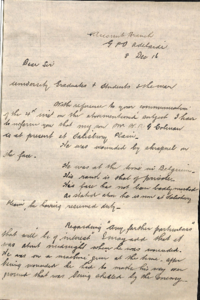 Account Branch
G.P.O Adelaide
8 Dec 16
Dear Sir
University Graduates & Students & the war
With reference to your communication
of the inst on the abovementioned subject I have
to inform you that my son Mr W. R. G.
is at present at Salisbury
Plain.
He was wounded by shrapnel in
the face.
He was at the time in Belgium.
His rank is that of private.
His face has not been badly mutilated
as stated when he is now at Salisbury
Plain he having resumed duty.
Regarding "any further particulars
that will be of interest" I may add that it
was about midnight when he was wounded.
He was on a machine gun at the time. After
being wounded he had to make his way over
ground that was being shelled by the enemy